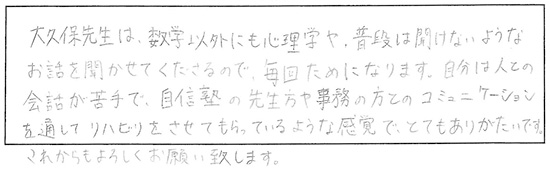 大久保先生は、数学以外にも心理学や、普段は聞けないような
お話を聞かせてくださるので、毎回ためになります。自分は人との
会話が苦手で、自信塾の先生方や事務の方とのコミュニケーション
を通してリハビリをさせてもらっているような感覚で、とてもありがたいです。
これからもよろしくお願い致します。